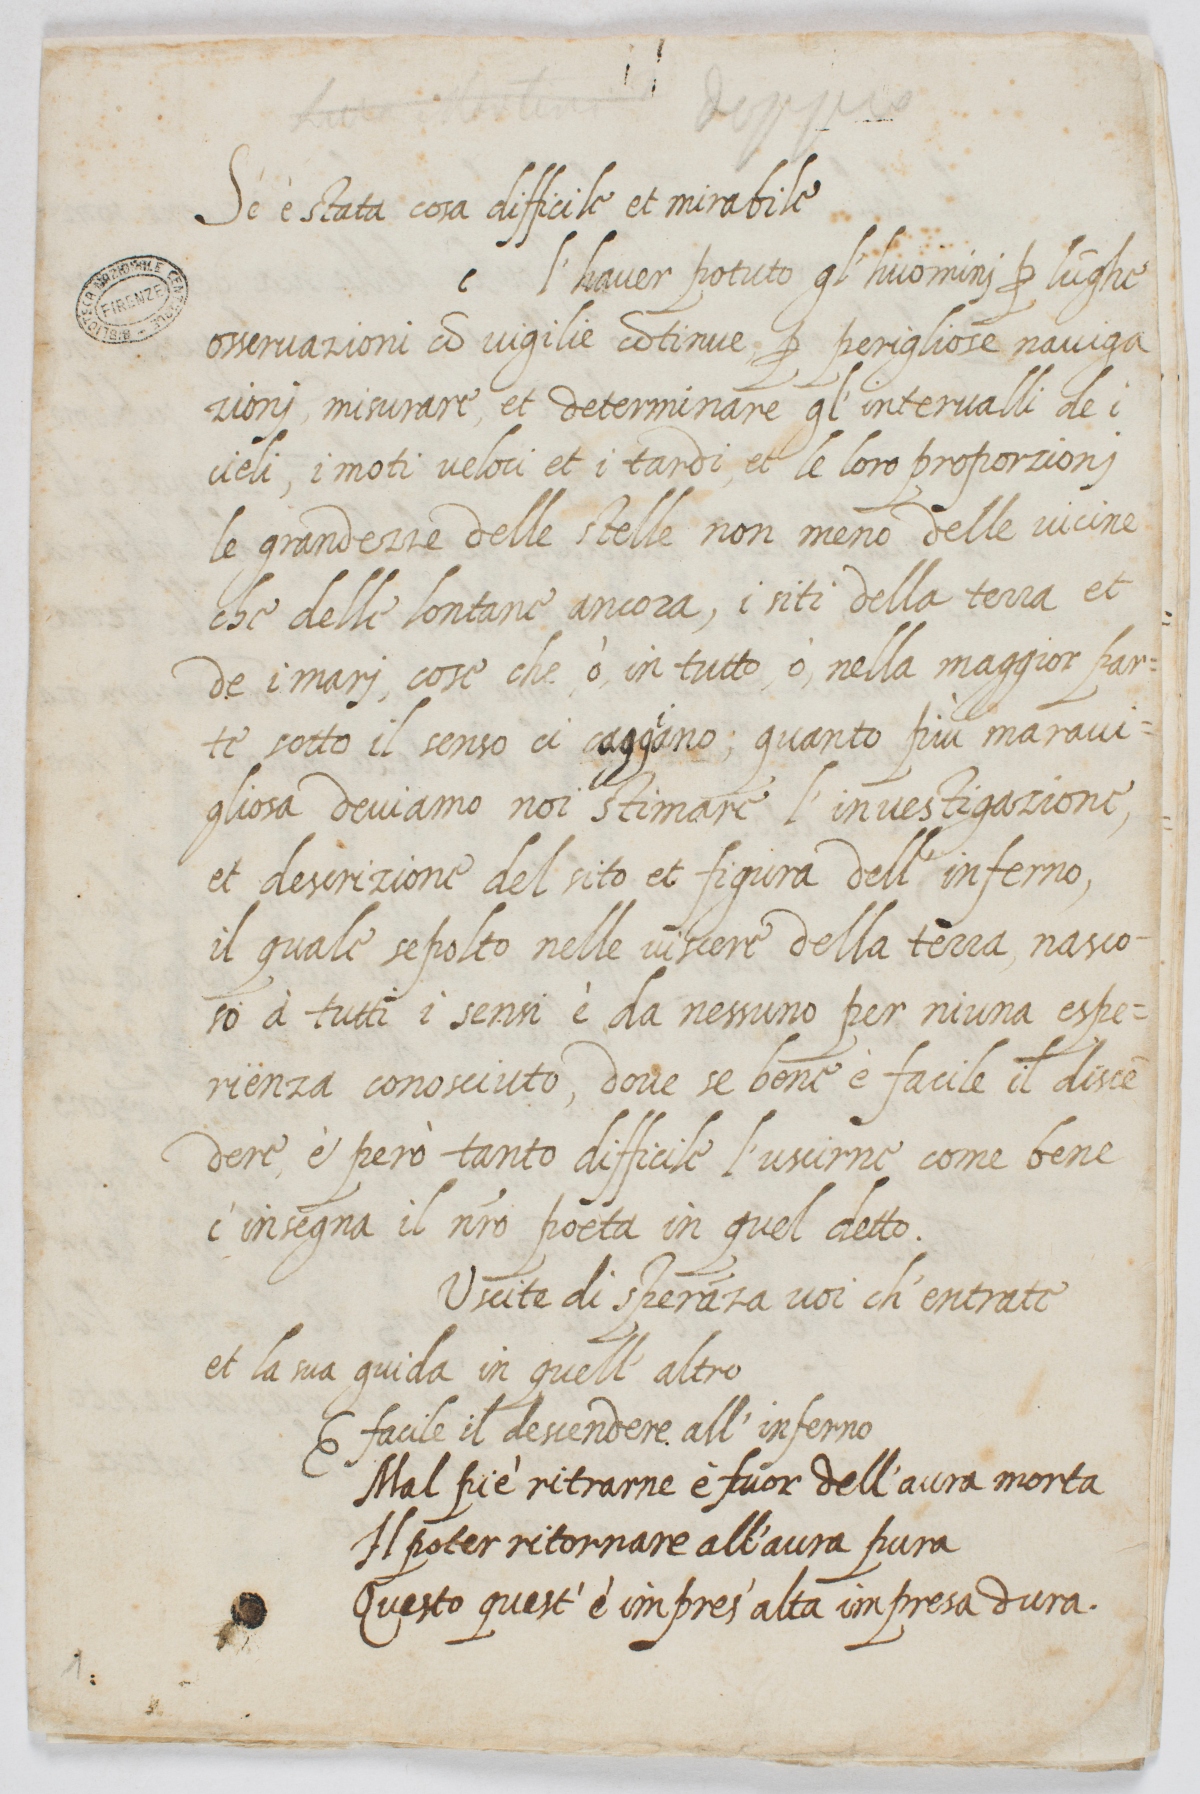 doppio
Se è stata cosa difficile et mirabile
c l'haver potuto gl'huominj ꝑ lūghe
BIBLIOTECA NAZIONALE CENTRALE
FIRENZE
osservazioni cō vigilie cōtinue, ꝑ perigliose naviga
zionj, misurare, et determinare gl'intervalli de i
cieli, i moti veloci et i tardi, et le loro proporzionj
le grandezze delle stelle non meno delle vicine
che delle lontane ancora, i siti della terra et
de i marj, cose che, ò, in tutto, ò, nella maggior par=
te sotto il senso ci caggiano; quanto più maravi=
gliosa deviamo noi stimare l'investigazione,
et descrizione del sito et figura dell'inferno,
il quale sepolto nelle viscere della terra, nasco-
so à tutti i sensi è da nessuno per niuna espe=
rienza conosciuto, dove se bene è facile il discē
dere, è però tanto difficile l'uscirne come bene
c'insegna il nr̄o poeta in quel detto.
Uscite di sperāza voi ch'entrate
et la sua guida in quell'altro
È facile il descendere all'inferno
Mal piè ritrarne è fuor dell'aura morta
Il poter ritornare all'aura pura
Questo quest'è impres'alta impresa dura.
1.